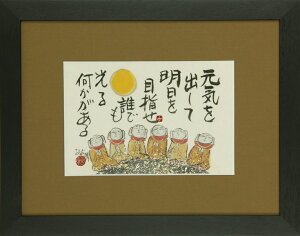 元気を
出して
明日を
目指せ
誰でも
光る
何かがある